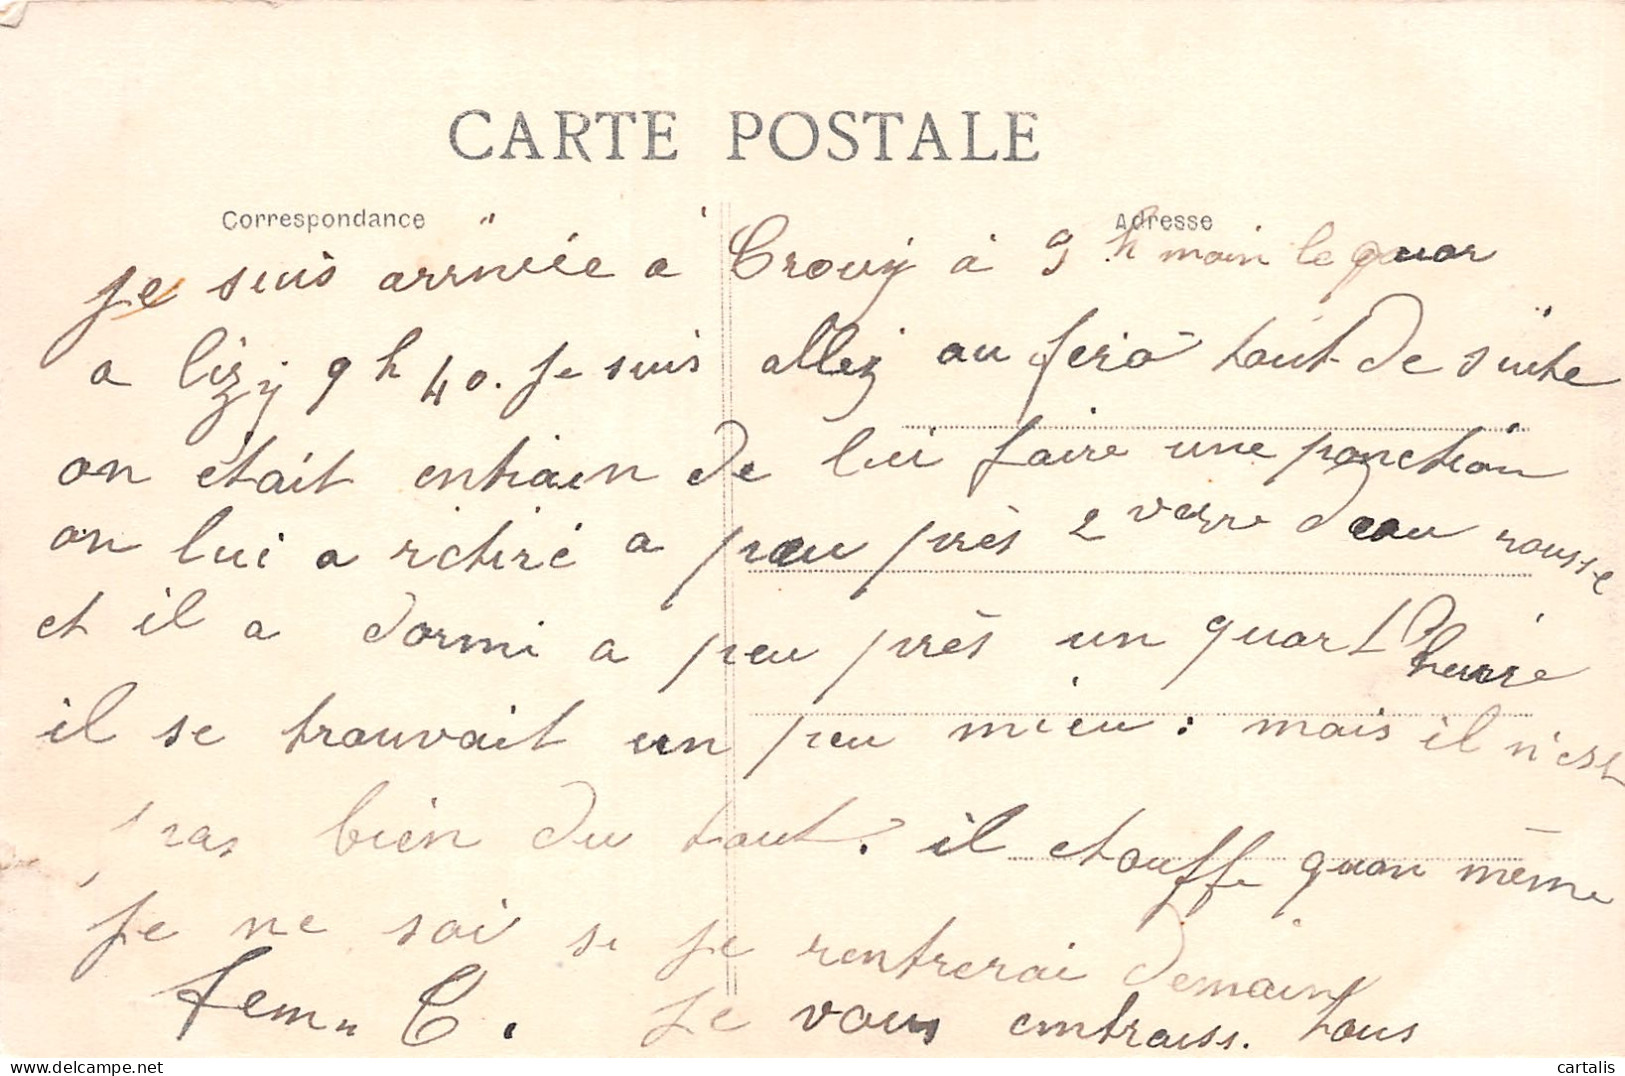 CARTE POSTALE
Correspondance Adresse
je suis arrivée a Crouy à 9 h moin le quar
a lizy 9 h 40. je suis allez au tout de suite
on était entrain de lui faire une ponction
on lui a retiré a peu près 2 verre deau rousse
et il a dormi a peu près un quart heure
il se trouvait un peu mieu : mais il n'est
pas bien du tout. il etouffe quan même
je ne sai si je rentrerai demain
fem C. je vous embrass. tous
cartalis